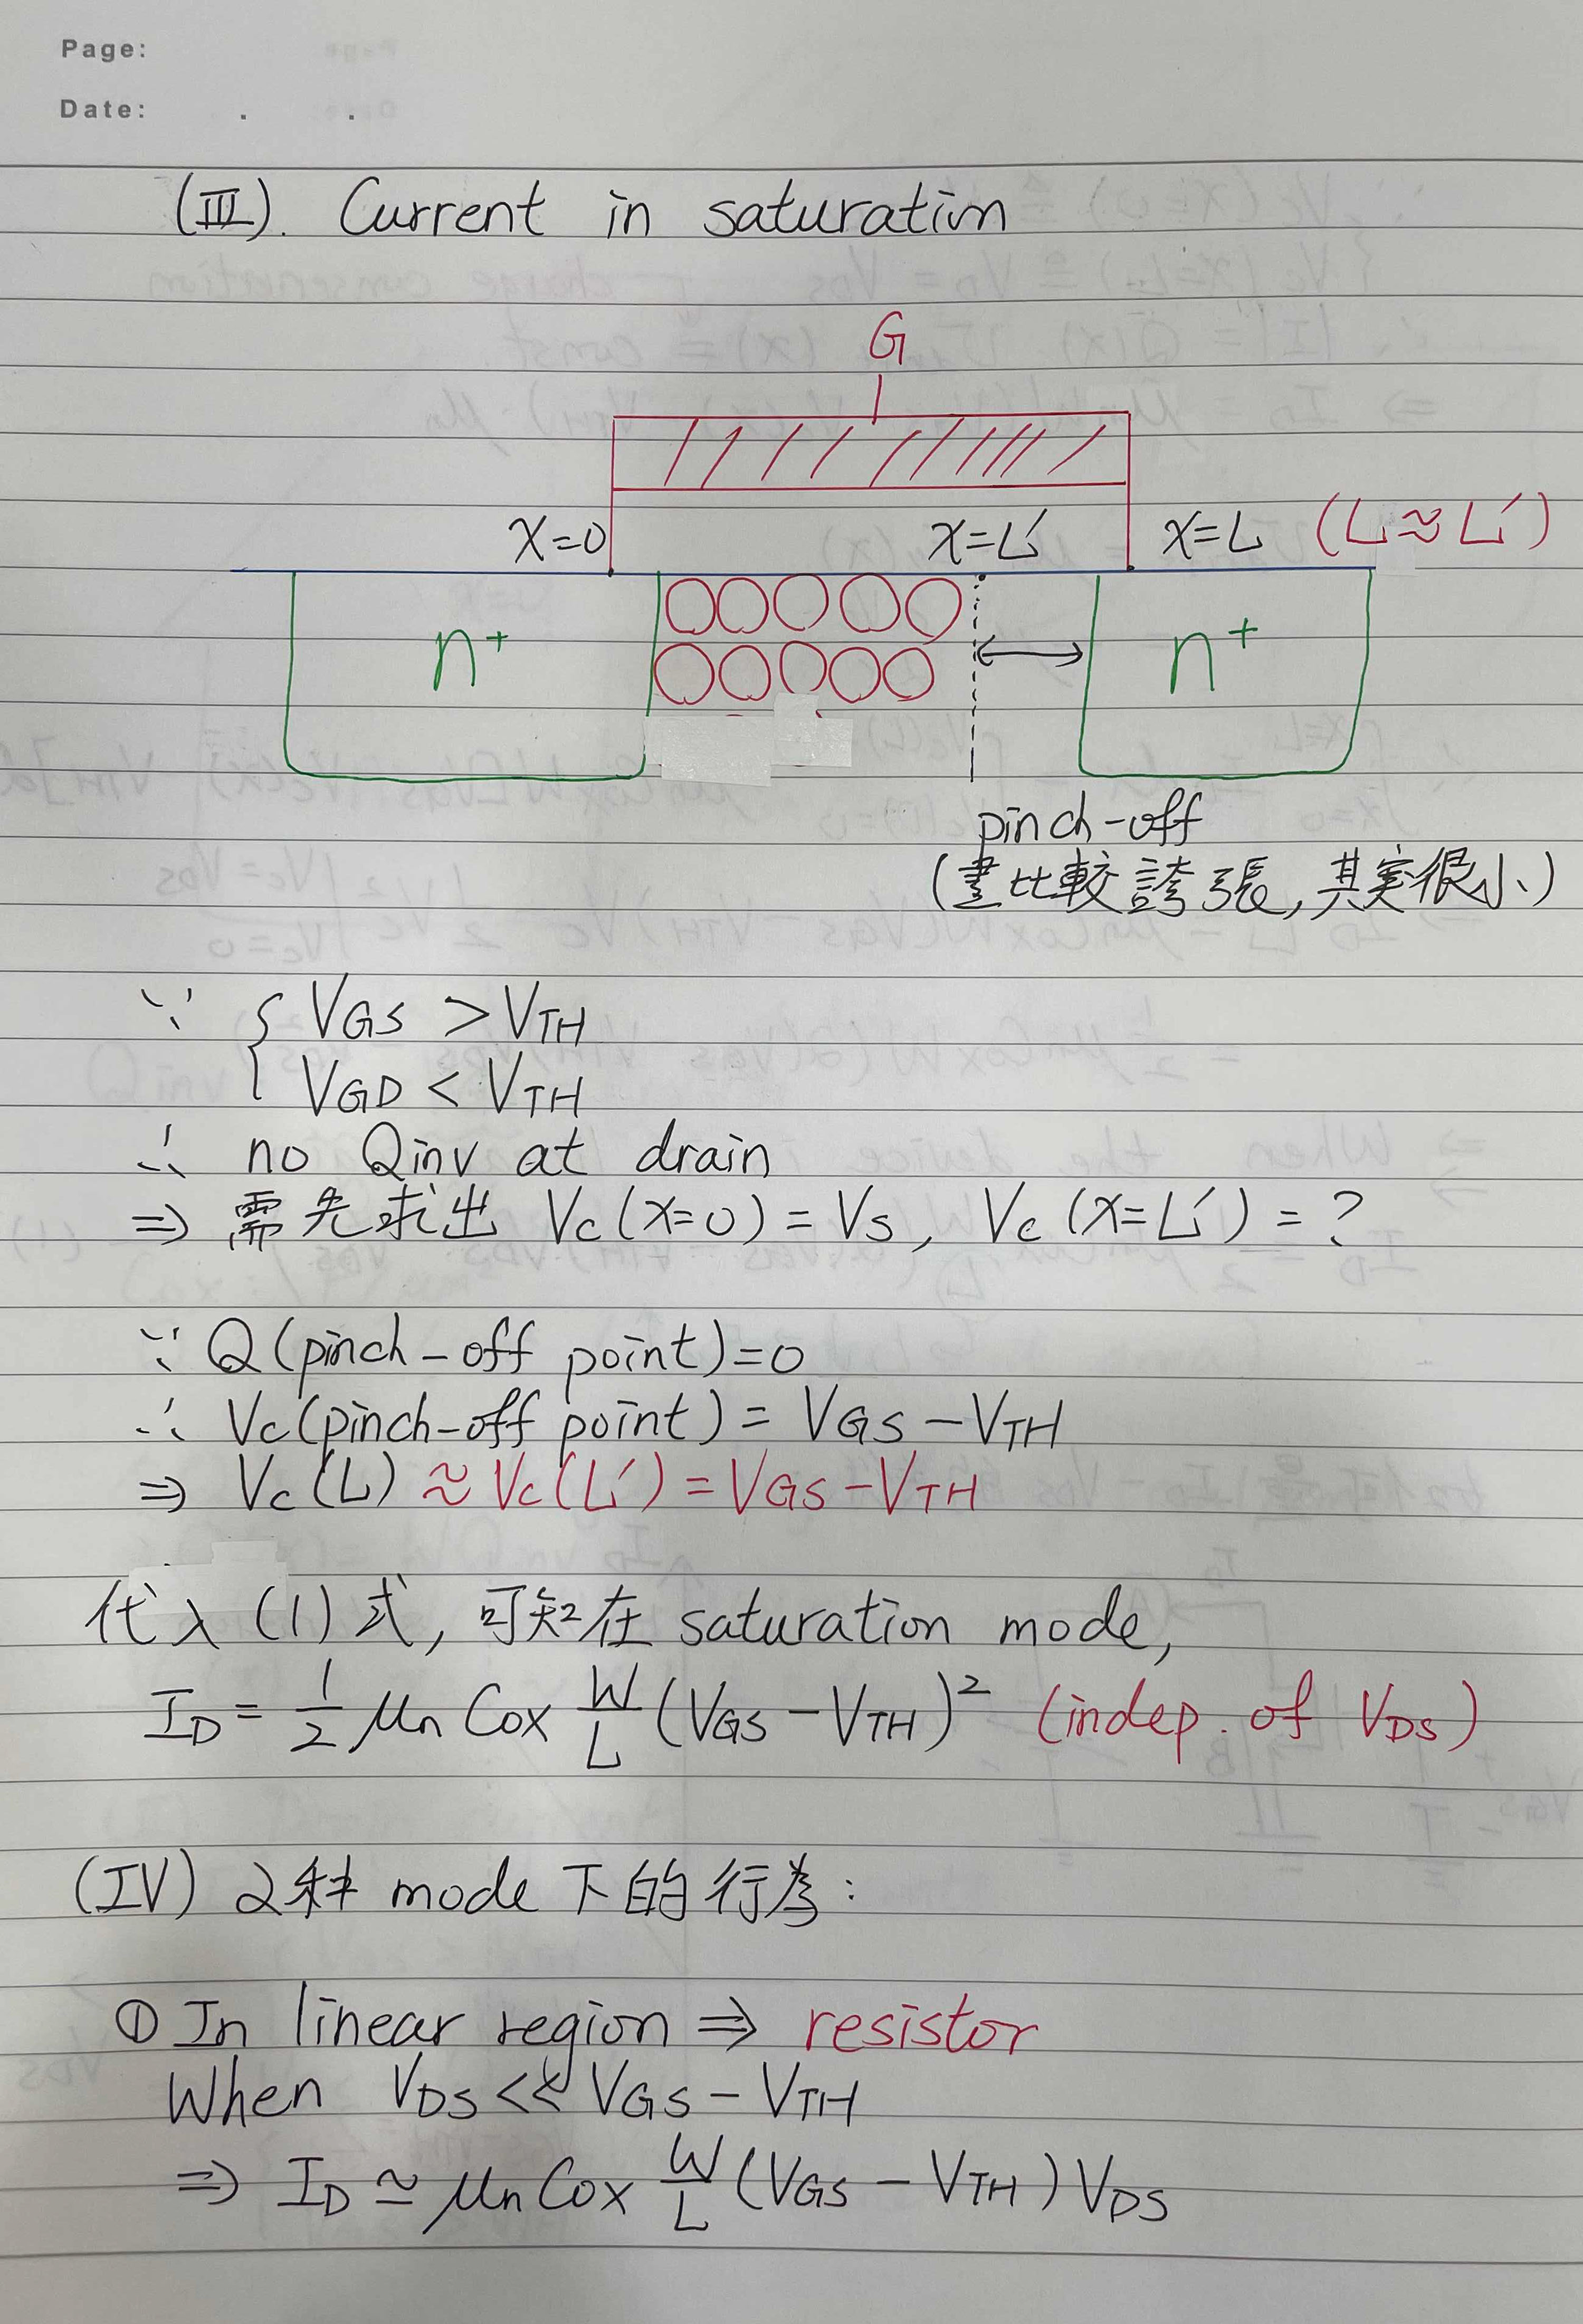 Page:
Date: . .
(III). Current in saturation
G
x=0 x=L' x=L (L≈L')
n⁺ n⁺
pinch-off
(畫比較誇張,其実很小)
∵ { VGS > VTH
VGD < VTH
∴ no Qinv at drain
⇒ 需先求出 Vc(x=0) = Vs, Vc(x=L') = ?
∵ Q(pinch-off point)=0
∴ Vc(pinch-off point) = VGS - VTH
⇒ Vc(L) ≈ Vc(L') = VGS - VTH
代入 (1) 式, 可知在 saturation mode,
ID = 1/2 μn Cox W/L (VGS - VTH)² (indep. of VDS)
(IV) 2种 mode 下的行為:
① In linear region ⇒ resistor
When VDS << VGS - VTH
⇒ ID ≃ μn Cox W/L (VGS - VTH) VDS